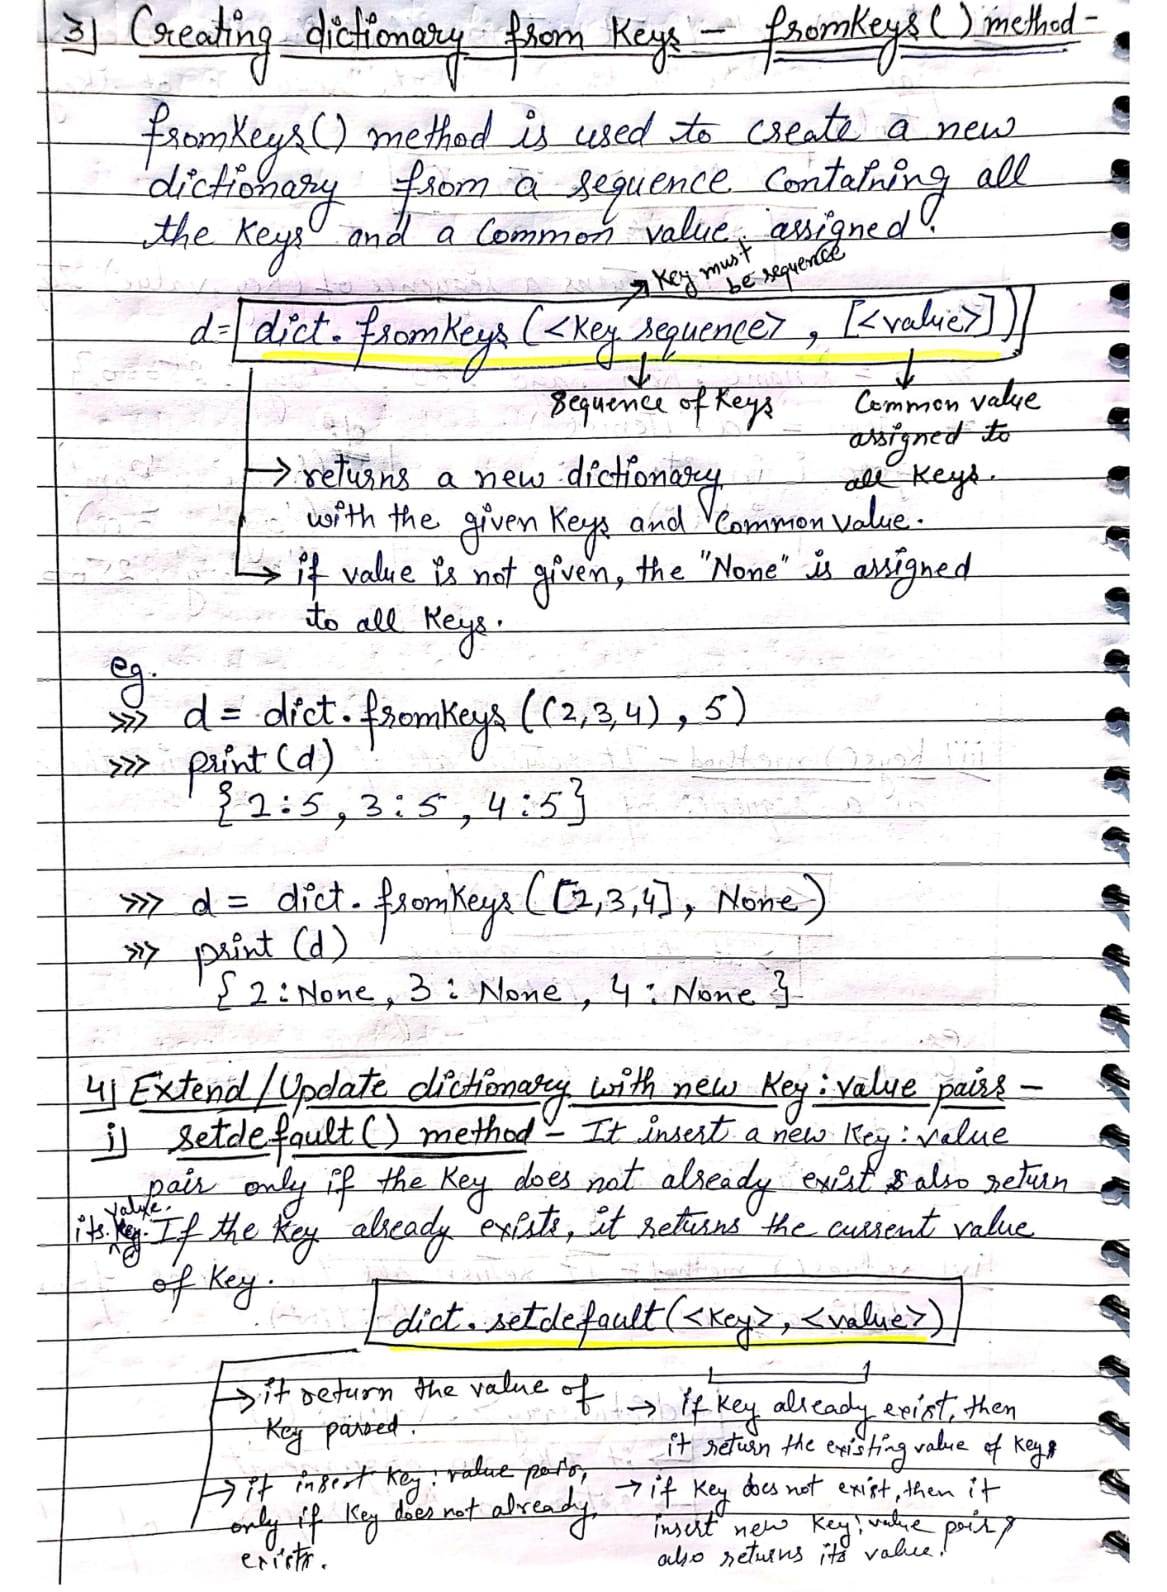 3) Creating dictionary from Keys - fromkeys() method -
fromkeys() method is used to create a new
dictionary from a sequence containing all
the Keys and a Common value assigned.
Key must
be sequence
d= dict.fromkeys(<key sequence>, [<value>])
Sequence of Keys
Common value
assigned to
all Keys.
→ returns a new dictionary
with the given Keys and Common value.
→ if value is not given, the "None" is assigned
to all Keys.
eg.
>>> d = dict.fromkeys((2,3,4), 5)
>>> print(d)
{2:5, 3:5, 4:5}
>>> d = dict.fromkeys([2,3,4], None)
>>> print(d)
{2:None, 3: None, 4: None}
4) Extend/Update dictionary with new Key:value pairs -
i) setdefault() method - It insert a new Key:value
pair only if the Key does not already exist & also return
value.
its. If the Key already exists, it returns the current value
of Key.
dict.setdefault(<key>, <value>)
→ it return the value of
Key parsed.
→ it insert Key:value pairs,
only if Key does not already
exists.
→ if Key already exist, then
it return the existing value of Key
→ if Key does not exist, then it
insert new Key:value pair &
also returns its value.